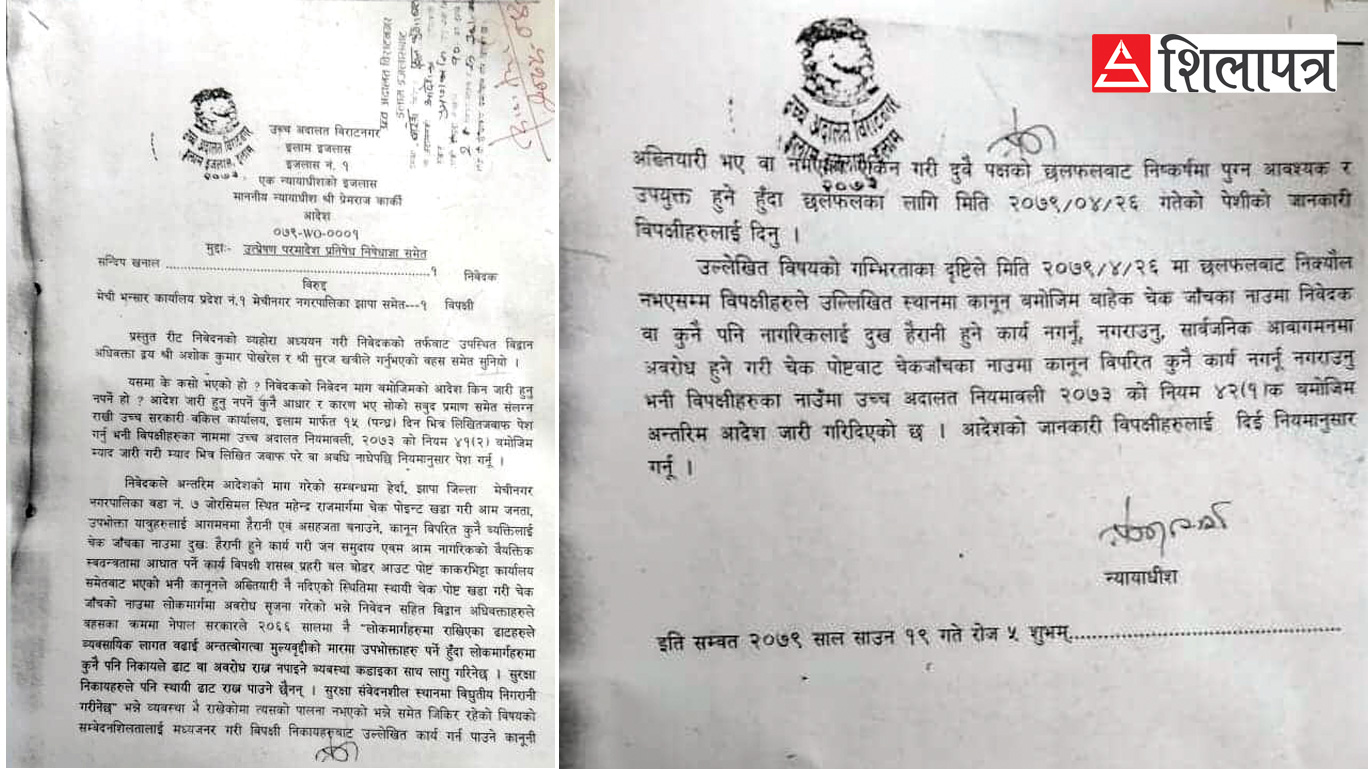 उच्च अदालत विराटनगर
इलाम इजलास
इजलास नं. १
एक न्यायाधीशको इजलास
माननीय न्यायाधीश श्री प्रेमराज कार्की
आदेश
०७९-WO-०००१
मुद्दाः- उत्प्रेषण परमादेश प्रतिषेध निषेधाज्ञा समेत
सन्दिप खनाल ................................१ निवेदक
विरुद्द
मेची भन्सार कार्यालय प्रदेश नं.१ मेचीनगर नगरपालिका झापा समेत---१ विपक्षी
प्रस्तुत रीट निवेदनको व्यहोरा अध्ययन गरी निवेदकको तर्फबाट उपस्थित बिद्वान
अधिवक्ता द्वय श्री अशोक कुमार पोखरेल र श्री सुरज खत्रीले गर्नुभएको बहस समेत सुनियो ।
यसमा के कसो भएको हो ? निवेदकको निवेदन माग बमोजिमको आदेश किन जारी हुनु
नपर्ने हो ? आदेश जारी हुनु नपर्ने कुनै आधार र कारण भए सोको सबुद प्रमाण समेत संलग्न
राखी उच्च सरकारी वकिल कार्यालय, इलाम मार्फत १५ (पन्ध्र) दिन भित्र लिखितजवाफ पेश
गर्नु भनी विपक्षीहरुका नाममा उच्च अदालत नियमावली, २०७३ को नियम ४१(२) बमोजिम
म्याद जारी गरी म्याद भित्र लिखित जवाफ परे वा अवधि नाघेपछि नियमानुसार पेश गर्नू ।
निवेदकले अन्तरिम आदेशको माग गरेको सम्बन्धमा हेर्दा, झापा जिल्ला मेचीनगर
नगरपालिका वडा नं. ७ जोरसिमल स्थित महेन्द्र राजमार्गमा चेक पोइन्ट खडा गरी आम जनता,
उपभोक्ता यात्रुहरुलाई आगमनमा हैरानी एवं असहजता बनाउने, कानून विपरित कुनै व्यक्तिलाई
चेक जाँचका नाउमा दुखः हैरानी हुने कार्य गरी जन समुदाय एबम आम नागरिकको वैयक्तिक
स्वतन्त्रतामा आघात पर्ने कार्य विपक्षी शसस्त्र प्रहरी बल बोडर आउट पोष्ट काकरभिट्टा कार्यालय
समेतबाट भएको भनी कानूनले अख्तियारी नै नदिएको स्थितिमा स्थायी चेक पोष्ट खडा गरी चेक
जाँचको नाउमा लोकमार्गमा अवरोध सृजना गरेको भन्ने निवेदन सहित बिद्वान अधिवक्ताहरुले
बहसका क्रममा नेपाल सरकारले २०६६ सालमा नै "लोकमार्गहरुमा राखिएका ढाटहरुले
व्यबसायिक लागत बढाई अन्तत्वोगत्वा मुल्यवृद्दीको मारमा उपभोक्ताहरु पर्ने हुँदा लोकमार्गहरुमा
कुनै पनि निकायले ढाट वा अवरोध राख्न नपाइने ब्यवस्था कडाइका साथ लागु गरिनेछ । सुरक्षा
निकायहरुले पनि स्थायी ढाट राख्न पाउने छैनन् । सुरक्षा संवेदनशील स्थानमा विघुतीय निगरानी
गरीनेछ" भन्ने व्यवस्था भै राखेकोमा त्यसको पालना नभएको भन्ने समेत जिकिर रहेको विषयको
सम्वेदनशिलतालाई मध्यजनर गरी बिपक्षी निकायहरुबाट उल्लेखित कार्य गर्न पाउने कानूनी
शिलापत्र
उच्च अदालत विराटनगर
इलाम इजलास, इलाम
२०७३
अख्तियारी भए वा गरी दुवै पक्षको छलफलबाट निष्कर्षमा पुग्न आवश्यक र
उपयुक्त हुने हुँदा छलफलका लागि मिति २०७९/०४/२६ गतेको पेशीको जानकारी
विपक्षीहरुलाई दिनु ।
उल्लेखित विषयको गम्भिरताका दृष्टिले मिति २०७९/४/२६ मा छलफलबाट निक्यौल
नभएसम्म विपक्षीहरुले उल्लिखित स्थानमा कानून बमोजिम बाहेक चेक जाँचका नाउमा निवेदक
वा कुनै पनि नागरिकलाई दुख हैरानी हुने कार्य नगर्नू, नगराउनु, सार्बजनिक आबागमनमा
अवरोध हुने गरी चेक पोष्टबाट चेकजाँचका नाउमा कानून विपरित कुनै कार्य नगर्नू नगराउनु
भनी विपक्षीहरुका नाउँमा उच्च अदालत नियमावली २०७३ को नियम ४२(१)क बमोजिम
अन्तरिम आदेश जारी गरिदिएको छ । आदेशको जानकारी विपक्षीहरुलाई दिई नियमानुसार
गर्नू ।
न्यायाधीश
इति सम्वत २०७९ साल साउन १९ गते रोज ५ शुभम्........................................